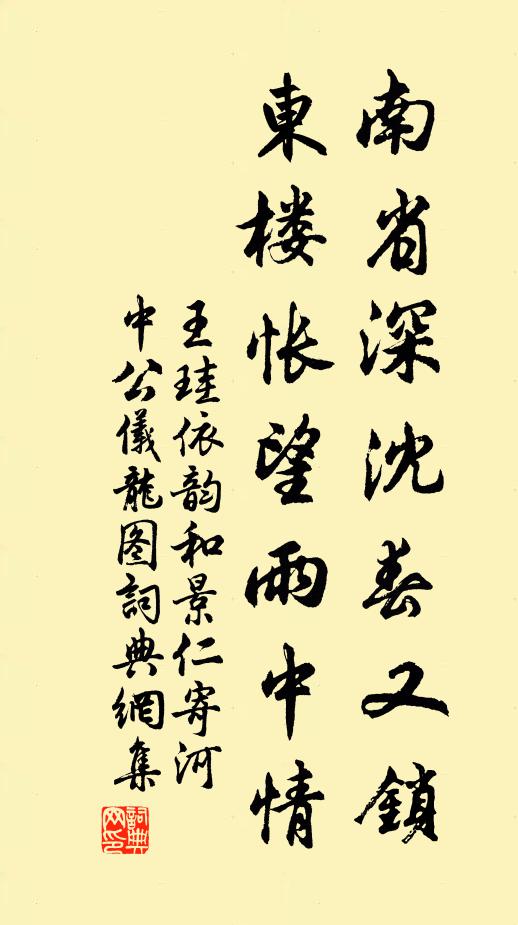 南省深沈春又鎖
東楼悵望雨中情
王珪依韵和景仁寄河
中公儀龍图詞典網集
詞典网印